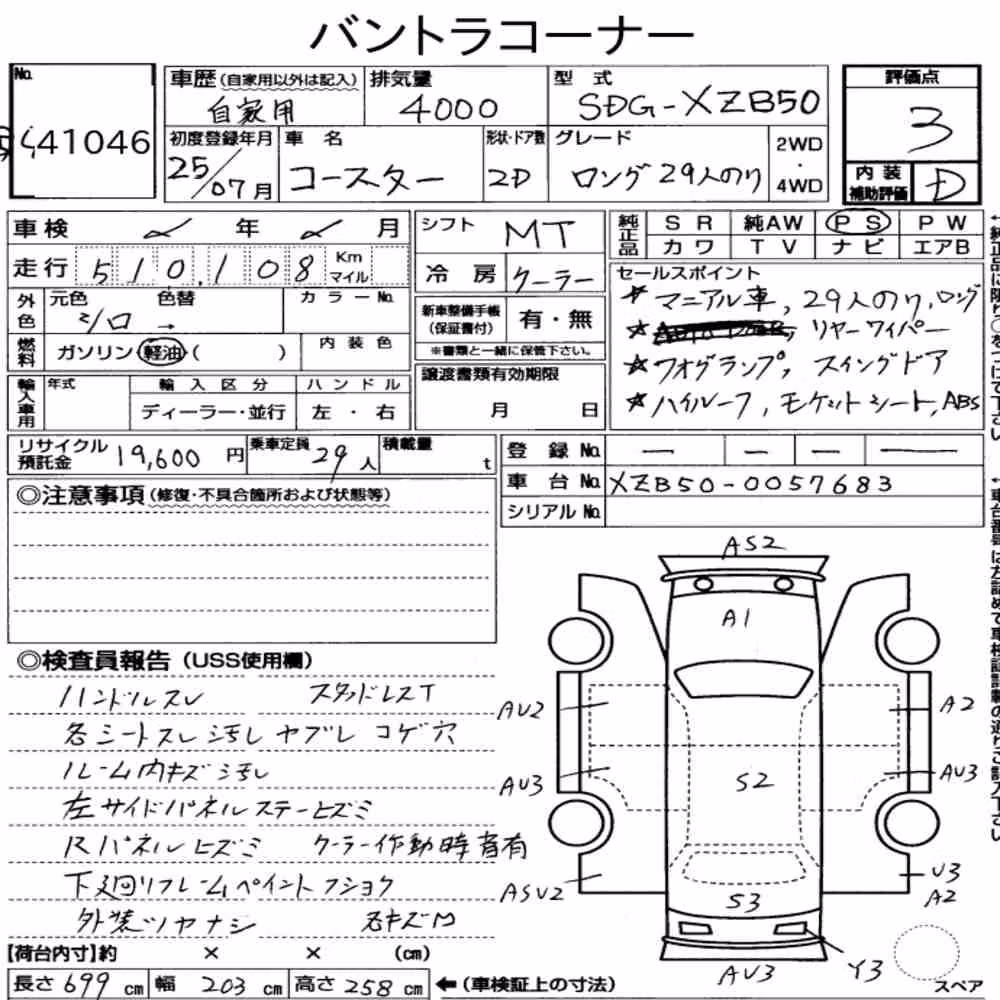 バントラコーナー
No. 41046
車歴 (自家用以外は記入) 自家用
排気量 4000
型式 SDG-XZB50
評価点 3
初度登録年月 25/07月
車名 コースター
形状・ドア数 2D
グレード ロング 29人のり
2WD・4WD
内装補助評価 D
車検 年 月
走行 510,108 Km マイル
シフト MT
冷房 クーラー
純正品 SR 純AW PS PW
カワ TV ナビ エアB
外色 元色 シロ 色替 → カラーNo.
燃料 ガソリン 軽油 ( ) 内装色
新車整備手帳 (保証書付) 有・無
※書類と一緒に保管下さい。
輸入車用 年式 輸入区分 ディーラー・並行 ハンドル 左・右
譲渡書類有効期限 月 日
セールスポイント
☆マニアル車, 29人のり, ロング
☆ リヤーワイパー
☆フォグランプ, スイングドア
☆ハイルーフ, モケットシート, ABS
リサイクル預託金 19,600 円
乗車定員 29 人
積載量 t
登録No. — — — —
車台No. XZB50-0057683
シリアルNo.
◎注意事項 (修復・不具合箇所および状態等)
◎検査員報告 (USS使用欄)
ハンドルスレ スタッドレスT
各シートスレ 汚レ ヤブレ コゲ穴
ルーム内キズ汚レ
左サイドパネルステーヒズミ
Rパネルヒズミ クーラー作動時音有
下廻リフレームペイントフショク
外装ツヤナシ 名キズM
AS2
A1
AU2
A2
AU3
AU3
S2
ASU2
U3
A2
S3
AU3
Y3
スペア
【荷台内寸】約 × × (cm)
長さ 699 cm 幅 203 cm 高さ 258 cm ←(車検証上の寸法)